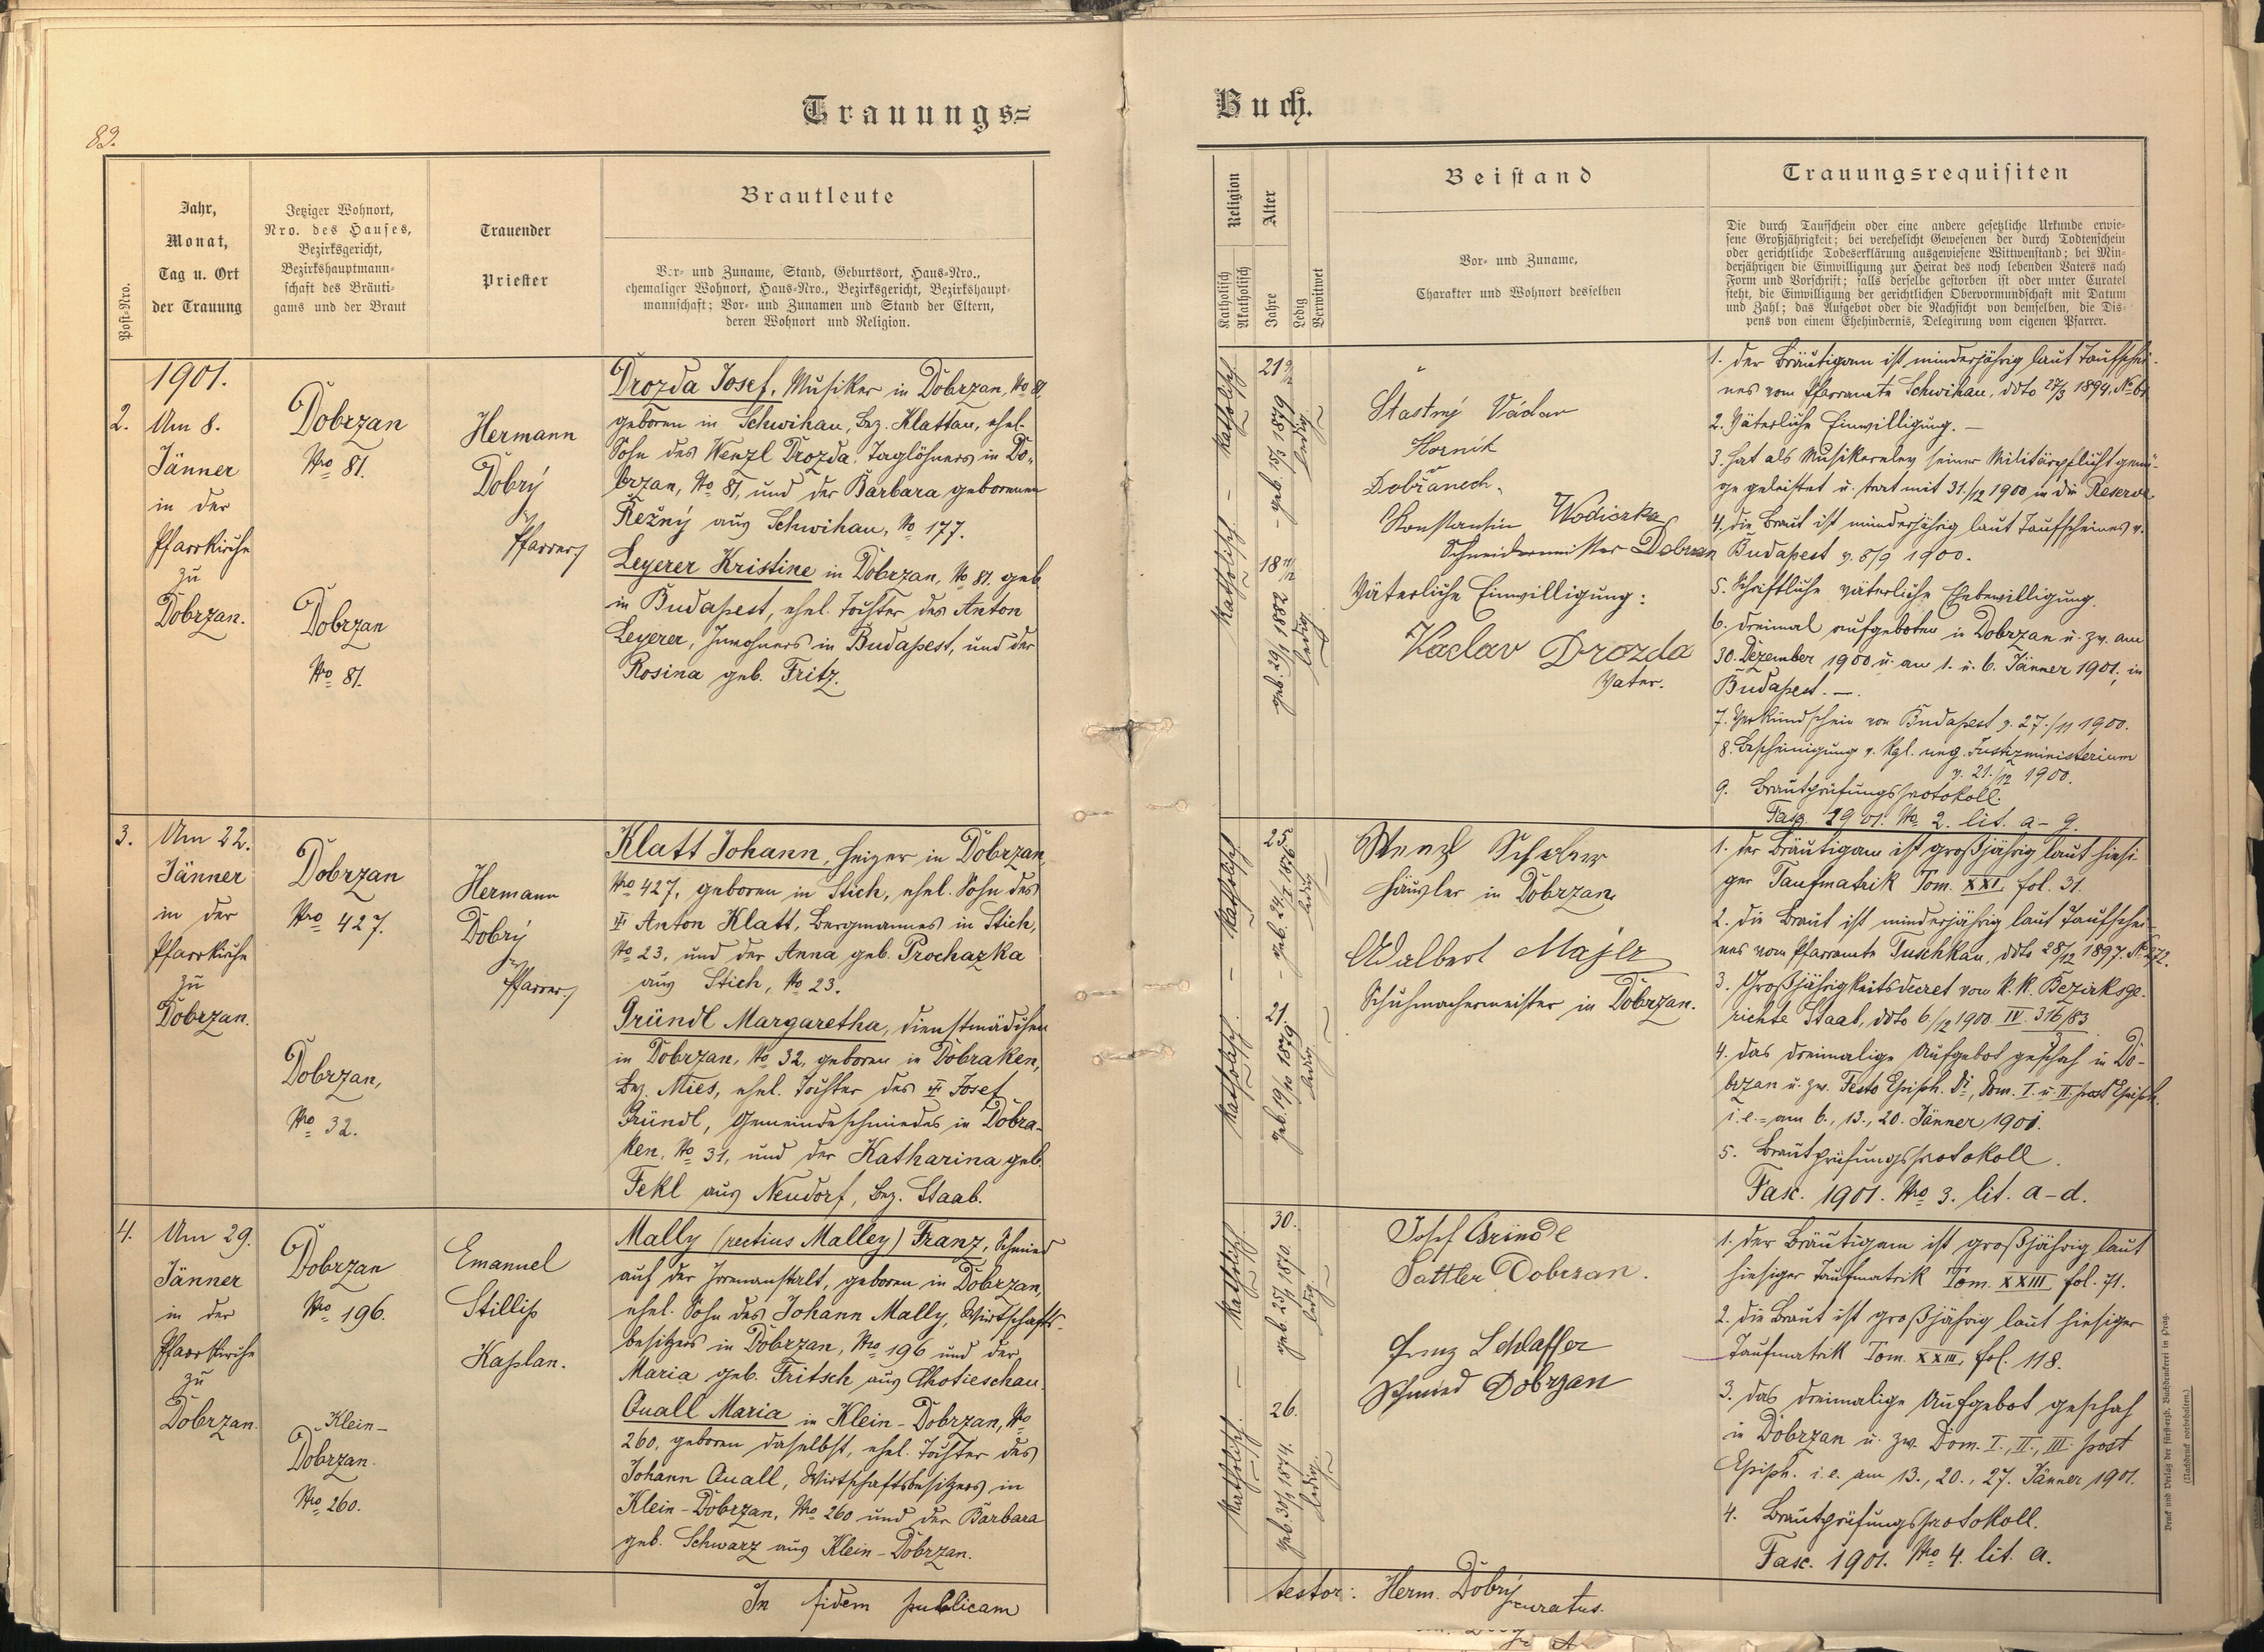 83.
Trauungs=
Post=Nro.
Jahr,
Monat,
Tag u. Ort
der Trauung
Jetziger Wohnort,
Nro. des Hauses,
Bezirksgericht,
Bezirkshauptmann=
schaft des Bräuti=
gams und der Braut
Trauender
Priester
Brautleute
Vor= und Zuname, Stand, Geburtsort, Haus=Nro.,
ehemaliger Wohnort, Haus=Nro., Bezirksgericht, Bezirkshaupt=
mannschaft; Vor= und Zunamen und Stand der Eltern,
deren Wohnort und Religion.
1901.
2.
Am 8.
Jänner
in der
Pfarrkirche
zu
Dobrzan.
Dobrzan
Nro 81.
Dobrzan
No 81.
Hermann
Dobrý
Pfarrer
Drozda Josef, Musiker in Dobrzan, No 81,
geboren in Schwihau, Bez. Klattau, ehel.
Sohn des Wenzl Drozda, Taglöhners in Do-
brzan, No 81, und der Barbara geborenen
Řežný aus Schwihau, No 177.
Leyerer Kristine in Dobrzan, No 81. geb.
in Budapest, ehel. Tochter des Anton
Leyerer, Inwohners in Budapest, und der
Rosina geb. Fritz.
3.
Am 22.
Jänner
in der
Pfarrkirche
zu
Dobrzan.
Dobrzan
Nro 427.
Dobrzan,
Nro 32.
Hermann
Dobrý
Pfarrer
Klatt Johann, Heizer in Dobrzan,
Nro 427, geboren in Stich, ehel. Sohn des
Anton Klatt, Bergmannes in Stich,
No 23, und der Anna geb. Prochazka
aus Stich, No 23.
Gründl Margaretha, Dienstmädchen
in Dobrzan, No 32, geboren in Dobraken,
Bez. Mies, ehel. Tochter des Josef
Gründl, Gemeindeschmiedes in Dobra-
ken, No 31, und der Katharina geb.
Fekl aus Neudorf, Bez. Staab.
4.
Am 29.
Jänner
in der
Pfarrkirche
zu
Dobrzan.
Dobrzan
Nro 196.
Klein-
Dobrzan.
Nro 260.
Emanuel
Stillip
Kaplan.
Mally (rectius Malley) Franz, Schmied
auf der Irrenanstalt, geboren in Dobrzan,
ehel. Sohn des Johann Mally, Wirtschafts-
besitzers in Dobrzan, Nro 196 und der
Maria geb. Fritsch aus Chotieschau.
Quall Maria in Klein-Dobrzan, No
260, geboren daselbst, ehel. Tochter des
Johann Quall, Wirtschaftsbesitzers in
Klein-Dobrzan, No 260 und der Barbara
geb. Schwarz aus Klein-Dobrzan.
In fidem publicam
Buch.
Religion
Katholisch
Akatholisch
Alter
Jahre
Ledig
Verwitwet
Beistand
Vor= und Zuname,
Charakter und Wohnort desselben
Trauungsrequisiten
Die durch Taufschein oder eine andere gesetzliche Urkunde erwie=
sene Großjährigkeit; bei verehelicht Gewesenen der durch Todtenschein
oder gerichtliche Todeserklärung ausgewiesene Wittwenstand; bei Min=
derjährigen die Einwilligung zur Heirat des noch lebenden Vaters nach
Form und Vorschrift; falls derselbe gestorben ist oder unter Curatel
steht, die Einwilligung der gerichtlichen Obervormundschaft mit Datum
und Zahl; das Aufgebot oder die Nachsicht von demselben, die Dis=
pens von einem Ehehindernis, Delegirung vom eigenen Pfarrer.
Katholisch - Katholisch
21 9/12
geb. 15/3 1879
ledig
18 11/12
geb. 29/1 1882
ledig
Stastný Václav
Horník
Dobřanech.
Konstantin Wodiczka
Schneidermeister Dobrzan
Väterliche Einwilligung:
Václav Drozda
Vater.
1. der Bräutigam ist minderjährig laut Taufschei-
nes vom Pfarramte Schwihau, ddto 27/3 1894, No 61.
2. Väterliche Einwilligung. -
3. hat als Musikereleve seiner Militärpflicht genü-
ge geleistet u. trat mit 31./12 1900 in die Reserve.
4. die Braut ist minderjährig laut Taufscheines v.
Budapest v. 5/9 1900.
5. Schriftliche väterliche Ehebewilligung.
6. dreimal aufgeboten in Dobrzan u. zw. am
30. Dezember 1900 u. am 1. u. 6. Jänner 1901; in
Budapest. -.
7. Verkündschein von Budapest v. 27./11 1900.
8. Bescheinigung v. Kgl. ung. Justizministerium
v. 21./12 1900.
9. Brautprüfungsprotokoll.
Fasz. 1901. No 2. lit. a-g.
Katholisch - Katholisch
25
geb. 24./I. 1876
ledig
21.
geb. 19/10 1879
ledig
Wenzl Schober
Häusler in Dobrzan
Adalbert Majer
Schuhmachermeister in Dobrzan.
1. der Bräutigam ist großjährig laut hiesi-
ger Taufmatrik Tom. XXI, fol. 31.
2. die Braut ist minderjährig laut Taufschei-
nes vom Pfarramte Tuschkau, ddto 28/12 1897. No 272.
3. Großjährigkeitsdecret vom k. k. Bezirksge-
richte Staab, ddto 6/12 1900. IV. 316/83
4. das dreimalige Aufgebot geschah in Do-
brzan u. zw. Festo Epiph. Di, Dom. I. u. II. post Epiph.
i. e. = am 6., 13., 20. Jänner 1901.
5. Brautprüfungsprotokoll.
Fasc. 1901. Nro 3. lit. a-d.
Katholisch - Katholisch
30.
geb. 25/1 1870.
ledig
26.
geb. 30/1 1874.
ledig
Josef Gründl
Sattler Dobrzan.
Franz Schlaffer
Schmied Dobrzan
1. der Bräutigam ist großjährig laut
hiesiger Taufmatrik Tom. XXIII fol. 71.
2. die Braut ist großjährig laut hiesiger
Taufmatrik Tom. XXIII, fol. 118.
3. das dreimalige Aufgebot geschah
in Dobrzan u. zw. Dom. I., II., III. post
Epiph. i. e. am 13., 20., 27. Jänner 1901.
4. Brautprüfungsprotokoll.
Fasc. 1901. Nro 4. lit. a.
testor: Herm. Dobrý
curatus.
Druck und Verlag der fürsterzb. Buchdruckerei in Prag.
(Nachdruck vorbehalten.)